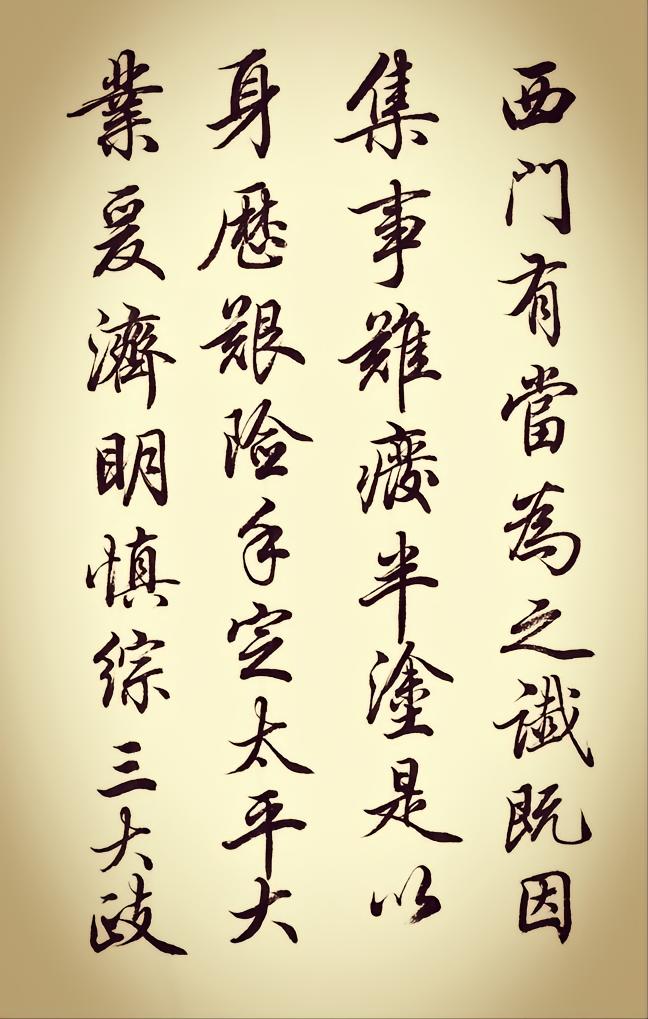 西門有當為之讖既因
集事難癈半塗是以
身歷艱险手定太平大
業爰濟明慎綜三大歧